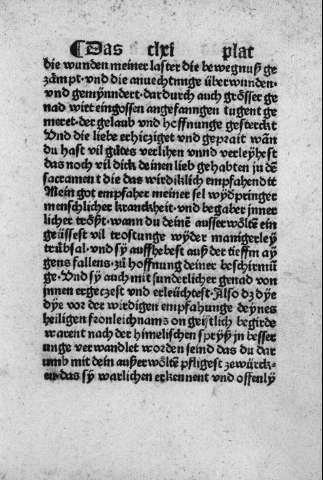 ¶Das clxi plat
die wunden meiner laster die bewegnuß ge
zämpt·vnd die anuechtunge überwunden·
vnd gemynndert·dardurch auch grösser ge
nad wirt eingossen angefanngen tugent ge
meret·der gelaub vnd hoffnunge gesterckt
Vnd die liebe erhicziget vnd geprait wañ
du hast vil gůtes verlihen vnnd verleyhest
das noch vil dick deinen lieb gehabten in dē
sacrament die das wirdiklich empfahend ē
Mein got empfaher meiner sel wyderpringer
menschlicher kranckheit·vnd begaber inner
licher tröst·wann du deinē ausserwölten ein
geüssest vil trostunge wyder manigerley
trübsal·vnd sy auffhebest auß der tieffin ay
gens fallens·zů hoffnung deiner beschirmū
ge·Vnd sy auch mit sunderlicher genad von
innen ergeczest vnd erleüchtest·Also dz dye
dye vor der wirdigen empfahunge deynes
heiligen fronleichnams on geistlich begirde
warent nach der himelischen speyß in besser
unge verwandlet worden seind das du dar
umb mit dein außerwölten pfligest zewürck⸗
en das sy warlichen erkennent vnd offenly